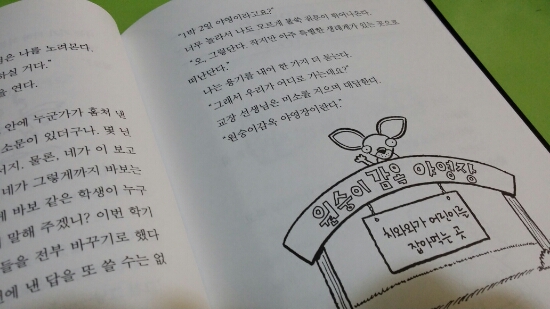 은 나를 노려본다.
하실 거다."
을 연다.
안에 누군가가 훔쳐 낸
소문이 있더구나. 몇 년
지. 물론, 네가 이 보고
네가 그렇게까지 바보는
바보 같은 학생이 누구
말해 주겠니? 이번 학기
들을 전부 바꾸기로 했다
전에 낸 답을 또 쓸 수는 없
"1박 2일 야영이라고요?"
너무 놀라서 나도 모르게 불쑥 질문이 튀어나온다.
"오, 그렇단다. 작지만 아주 특별한 생태계가 있는 곳으로
떠난단다."
나는 용기를 내어 한 가지 더 묻는다.
"그래서 우리가 어디로 가는데요?"
교장 선생님은 미소를 지으며 대답한다.
"원숭이감옥 야영장이란다."
원숭이 감옥 야영장
치와와가 어린이를
잡아먹는 곳